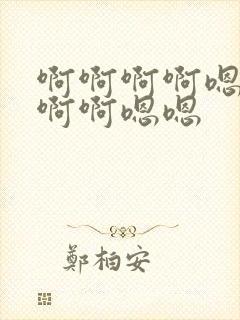 啊啊啊啊嗯
啊啊嗯嗯
鄭柏安